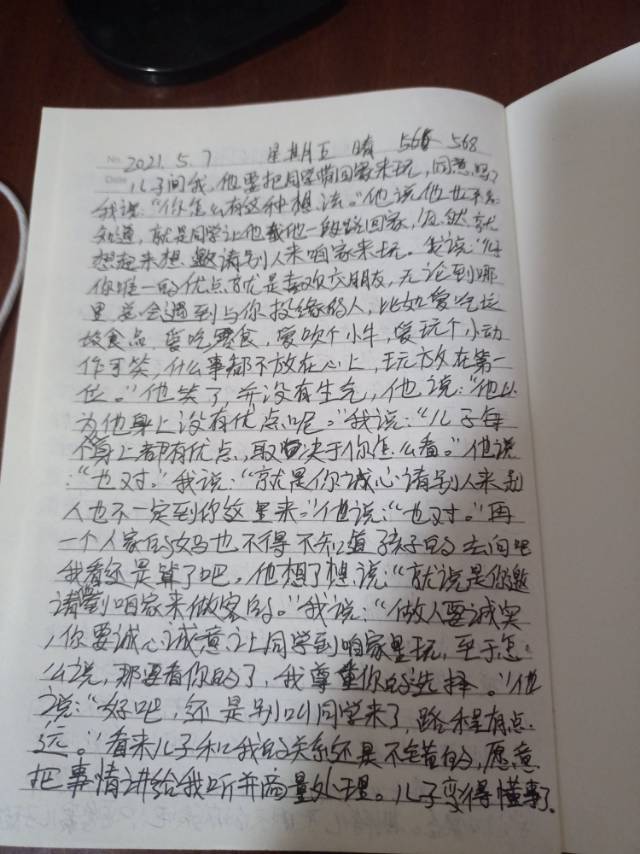 No. 2021.5.7 星期五 晴 566 568
Date 儿子问我，他要把同学带回家来玩，同意吗？
我说：“你怎么有这种想法。”他说他也不
知道，就是同学让他载他一段路回家，忽然就
想起来想邀请别人来咱家来玩。我说：“
你唯一的优点就是喜欢交朋友，无论到哪
里总会遇到与你投缘的人，比如爱吃垃
圾食品 爱吃零食，爱吹个小牛，爱玩个小动
作可笑，什么事都不放在心上，玩放在第一
位。”他笑了，并没有生气，他说：“他以
为他身上没有优点呢。”我说：“儿子每
个身上都有优点，取决于你怎么看。”他说
：“也对。”我说：“就是你诚心请别人来别
人也不一定到你这里来。”他说：“也对。”再
一个人家的妈也不得不知道孩子的去向吧
我看还是算了吧，他想了想说：“就说是你邀
请到咱家来做客的。”我说：“做人要诚实
，你要诚心诚意让同学到咱家里玩，至于怎
么说，那要看你的了，我尊重你的选择。”他
说：“好吧，还是别叫同学来了，路程有点
远。”看来儿子和我的关系还是不错的，愿意
把事情讲给我听并商量处理。儿子变得懂事了。